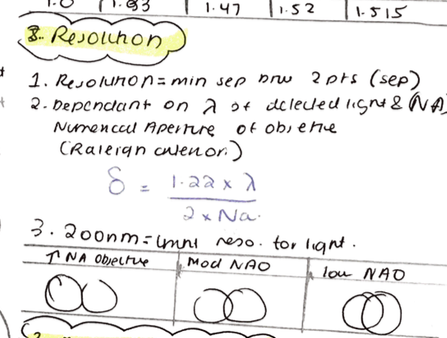 1.0 1.33 1.47 1.52 1.515
3. Resolution
1. Resolution = min sep btw 2 pts (sep)
2. Dependant on λ of detected light & (NA)
Numerical Aperture of objective
(Raleigh criterion.)
δ = 1.22 × λ
2 × Na.
3. 200nm = limit reso. for light.
↑ NA Objective Mod NAO low NAO